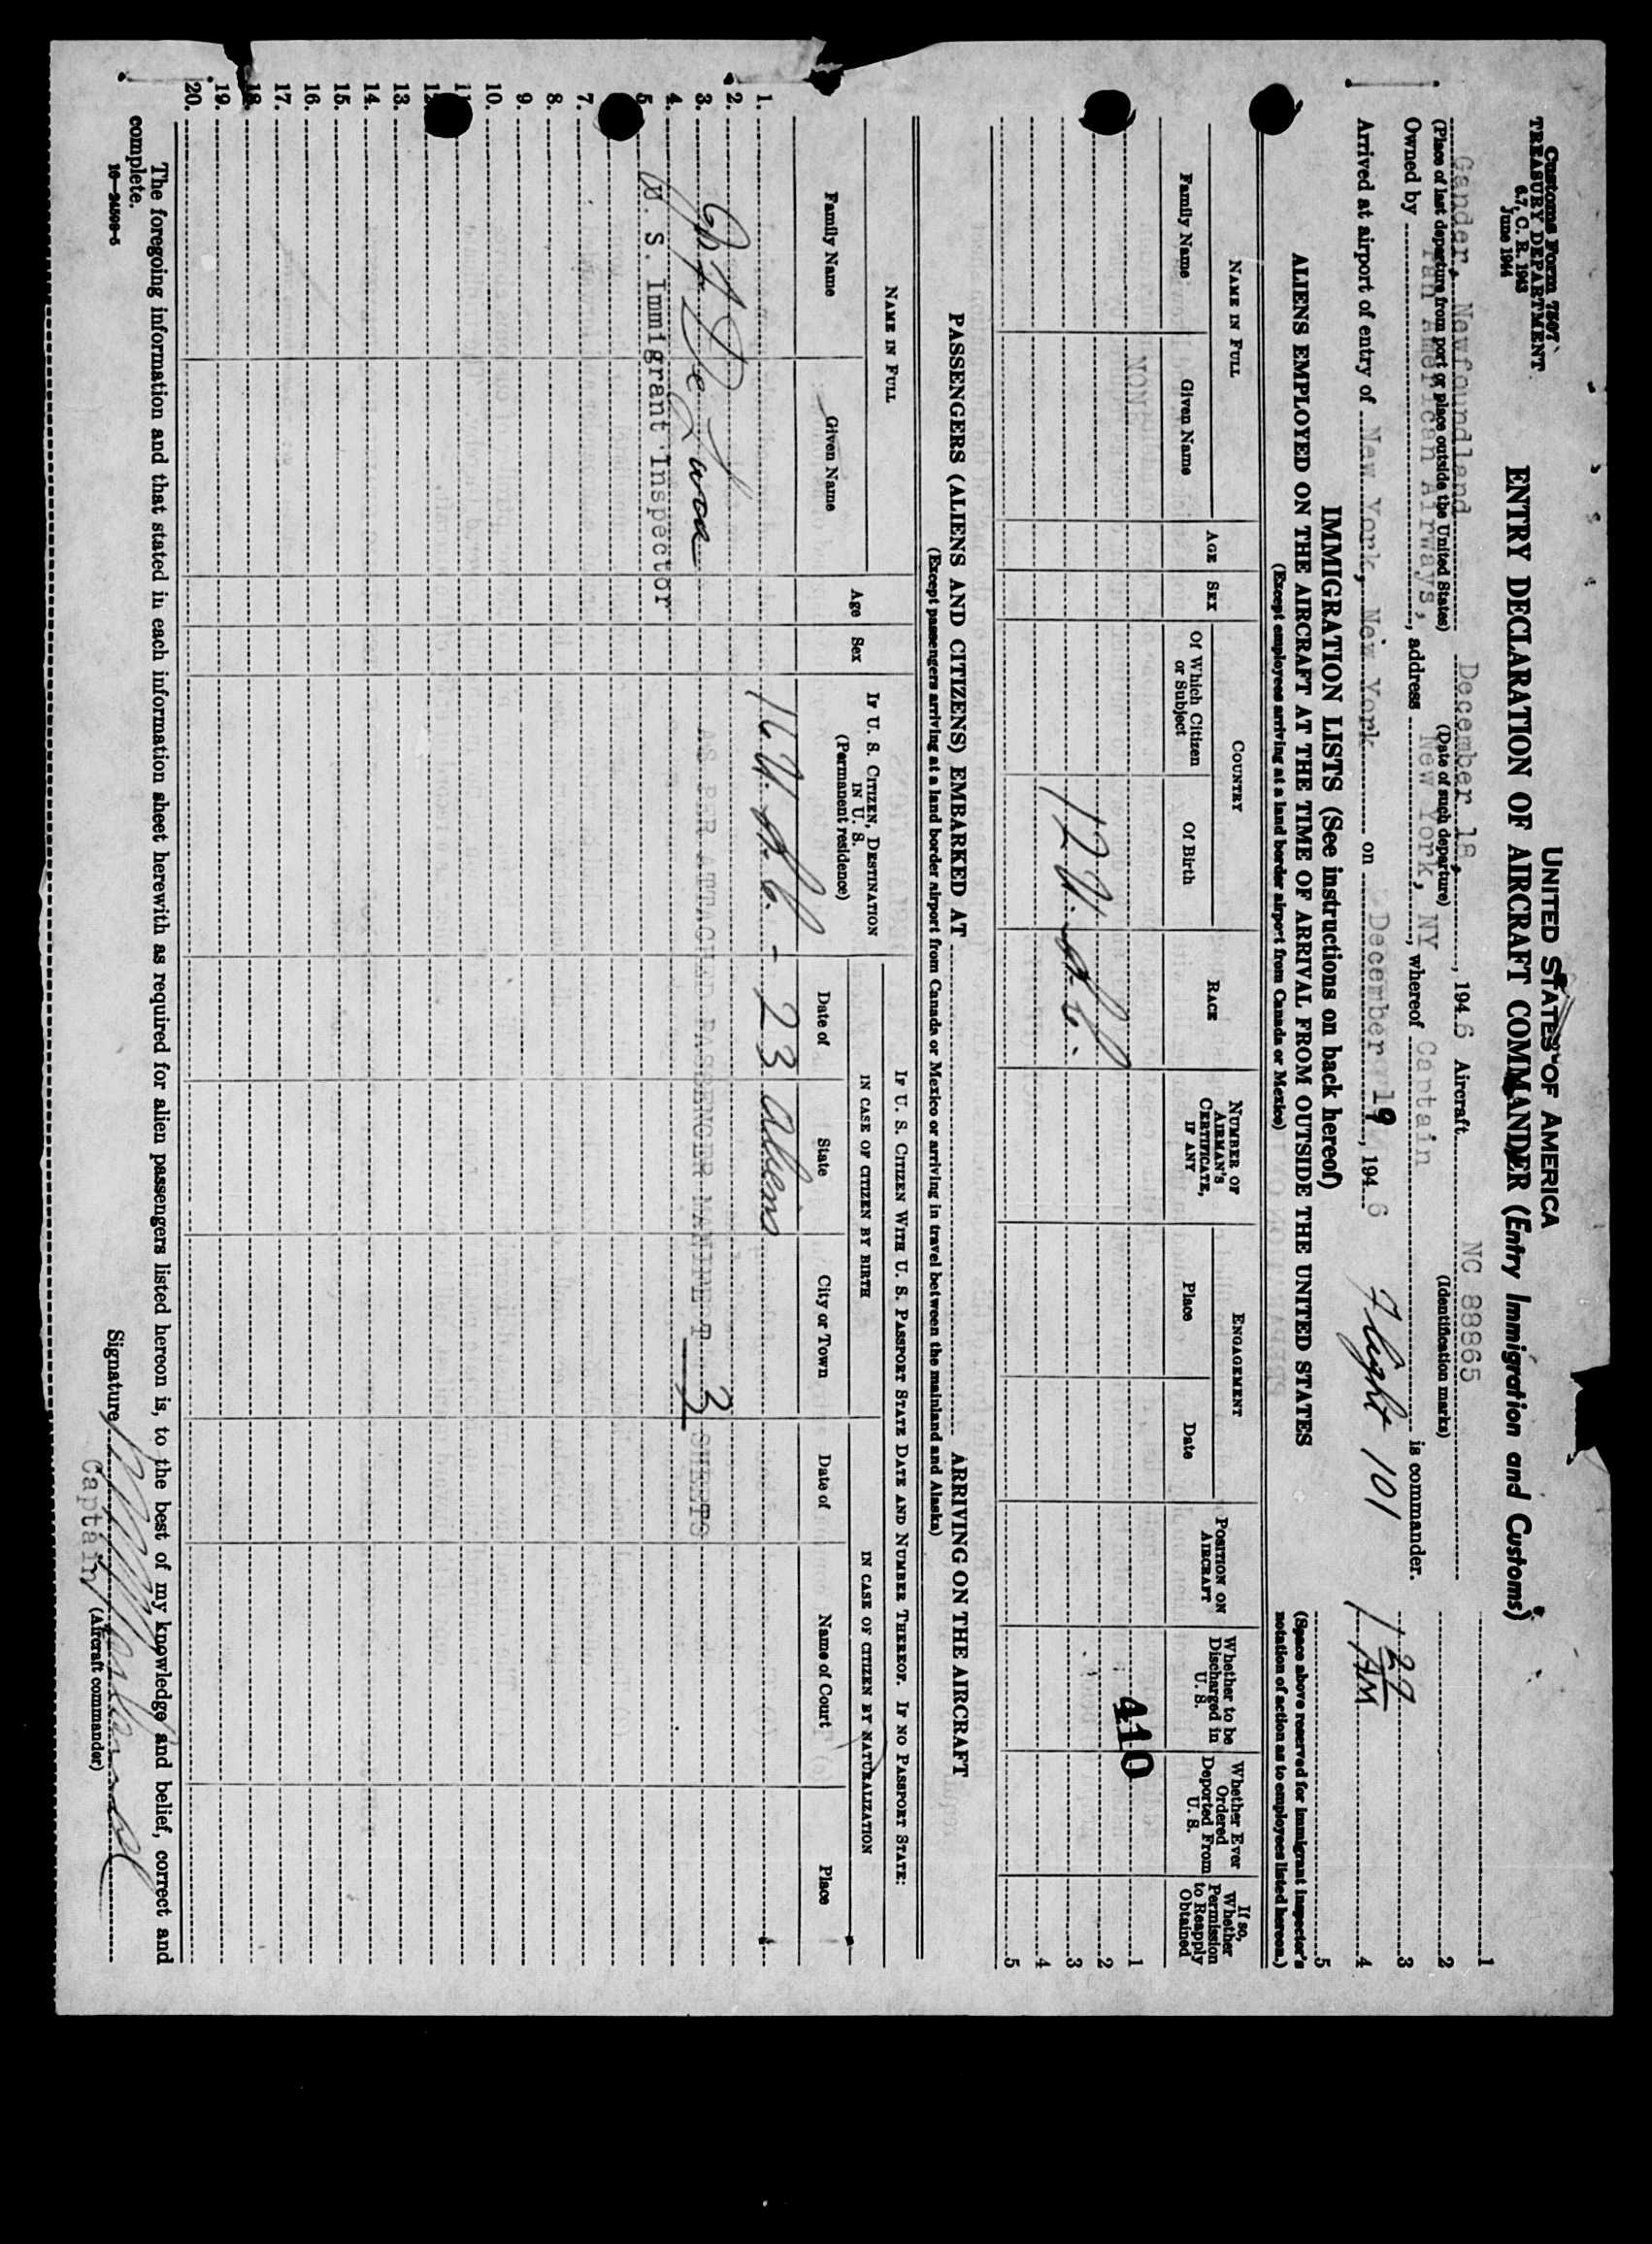 Customs Form 7507
TREASURY DEPARTMENT
6.7, C. R. 1943
June 1944
UNITED STATES OF AMERICA
ENTRY DECLARATION OF AIRCRAFT COMMANDER (Entry Immigration and Customs)
Gander, Newfoundland December 18, , 1946 Aircraft NC 88865
(Place of last departure from port or place outside the United States) (Date of such departure) (Identification marks)
Owned by Pan American Airways, , address New York, NY , whereof Captain is commander.
Arrived at airport of entry of New York, New York on December 19 , 1946 Flight 101
1
2
3
4
5
1 29 AM
(Space above reserved for immigrant inspector's notation of action as to employees listed hereon.)
IMMIGRATION LISTS (See instructions on back hereof)
ALIENS EMPLOYED ON THE AIRCRAFT AT THE TIME OF ARRIVAL FROM OUTSIDE THE UNITED STATES
(Except employees arriving at a land border airport from Canada or Mexico)
NAME IN FULL
Family Name
Given Name
AGE
SEX
COUNTRY
Of Which Citizen or Subject
Of Birth
RACE
NUMBER OF AIRMAN'S CERTIFICATE, IF ANY
ENGAGEMENT
Place
Date
POSITION ON AIRCRAFT
Whether to be Discharged in U. S.
Whether Ever Ordered Deported From U. S.
If so, Whether Permission to Reapply Obtained
NONE
410
1
2
12
3
4
5
PASSENGERS (ALIENS AND CITIZENS) EMBARKED AT ARRIVING ON THE AIRCRAFT
(Except passengers arriving at a land border airport from Canada or Mexico or arriving in travel between the mainland and Alaska)
NAME IN FULL
Family Name
Given Name
Age
Sex
IF U. S. CITIZEN, DESTINATION IN U. S.
(Permanent residence)
IF U. S. CITIZEN WITH U. S. PASSPORT STATE DATE AND NUMBER THEREOF. IF NO PASSPORT STATE:
IN CASE OF CITIZEN BY BIRTH
Date of
State
City or Town
IN CASE OF CITIZEN BY NATURALIZATION
Date of
Name of Court
Place
1. 16 - 23 aliens
2.
3. AS PER ATTACHED PASSENGER MANIFEST 3 SHEETS
4.
5. U. S. Immigrant Inspector
7.
8.
9.
10.
11.
12.
13.
14.
15.
16.
17.
18.
19.
20.
The foregoing information and that stated in each information sheet herewith as required for alien passengers listed hereon is, to the best of my knowledge and belief, correct and
complete.
16—24509-5
Signature
Captain (Aircraft commander)